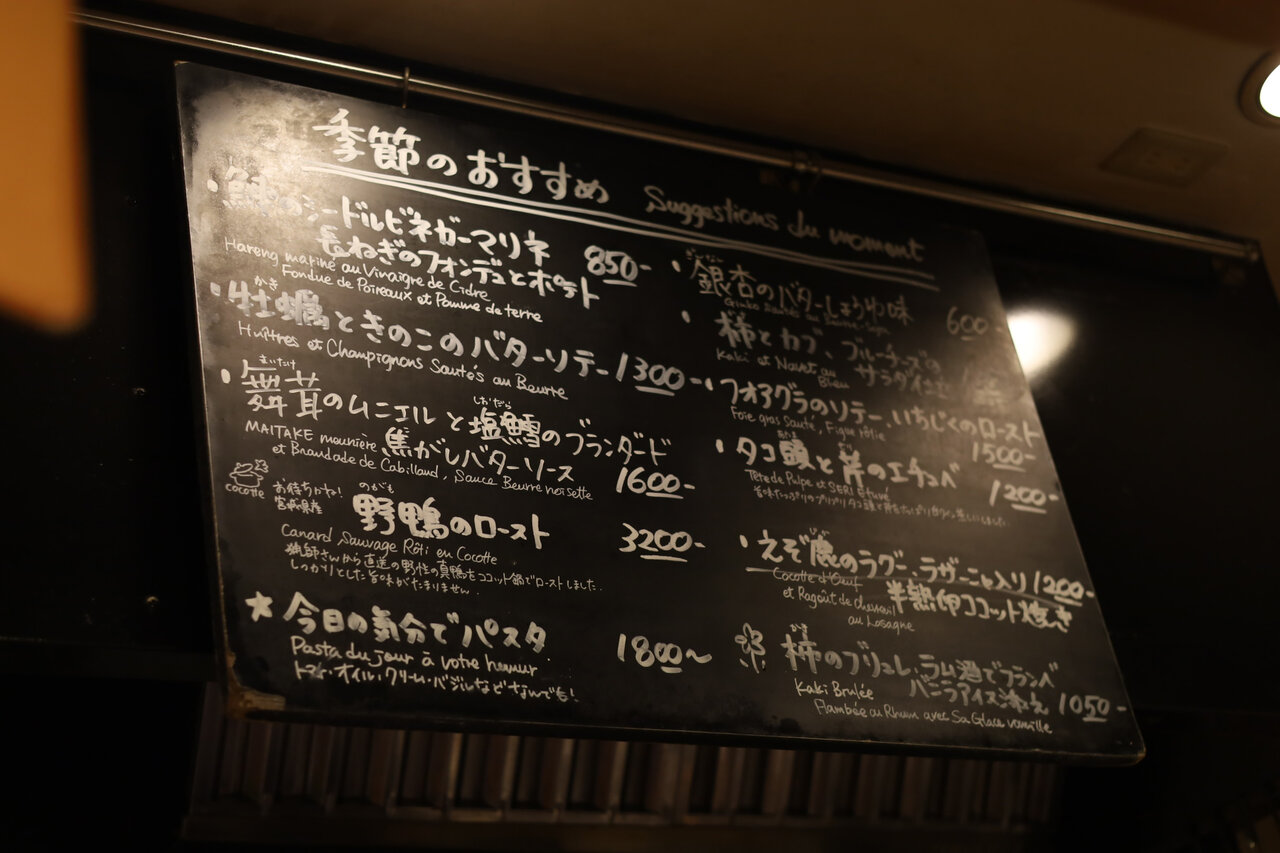 季節のおすすめ Suggestions du moment
のシードルビネガーマリネ
長ねぎのフォンデュとポテト 850-
Hareng mariné au Vinaigre de Cidre
Fondue de Poireaux et Pomme de terre
かき
・牡蠣ときのこのバターソテー 1300-
Huîtres et Champignons Sautés au Beurre
まいたけ
・舞茸のムニエルと塩鱈のブランダード
しおだら
焦がしバターソース 1600-
MAITAKE meunière
et Brandade de Cabillaud, Sauce Beurre noisette
cocotte
お待ちかね!
宮城県産
のがも
野鴨のロースト 3200-
Canard Sauvage Rôti en Cocotte
猟師さんから直送の野性の真鴨をココット鍋でローストしました。
しっかりとした旨味がたまりません。
★今日の気分でパスタ 1800〜
Pasta du jour à votre humur
トマト・オイル・クリーム・バジルなどなんでも!
ぎんなん
・銀杏のバターしょうゆ味 600-
・柿とカブ、ブルーチーズの
サラダ仕立
Kaki et Navet au
Bleu
・フォアグラのソテー、いちじくのロースト
Foie gras Sauté, Figue rôtie
1500-
・タコ頭と芹のエチュベ 1200-
Tête de Pulpe et SERI Etuvé
・えぞ鹿のラグー、ラザーニャ入り 1200-
半熟卵ココット焼き
Cocotte d'Oeuf
et Ragoût de chevreuil
au Lasagne
かき
柿のブリュレ・ラム酒でフランベ
バニラアイス添え 1050-
Kaki Brulée
Flambée au Rhum avec Sa Glace vanille